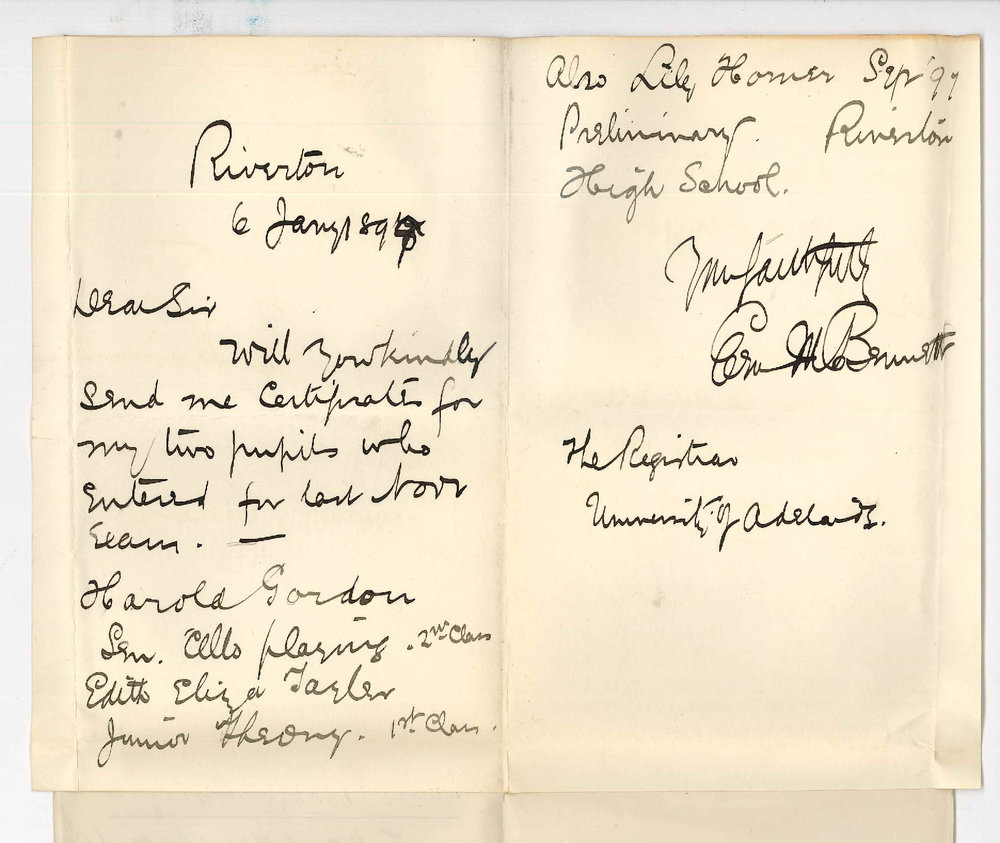 Riverton
6 Jany 1898
Dear Sir
Will you kindly
send me Certificates for
my two pupils who
entered for last Novr
Exam. —
Harold Gordon
Sen. 'Cello playing. 2nd Class
Edith Eliza Tayler
Junior Theory. 1st Class.
Also Lily Horner Sepr '97
Preliminary. Riverton
High School.
Yrs faithfully
M Bennett
The Registrar
University of Adelaide.